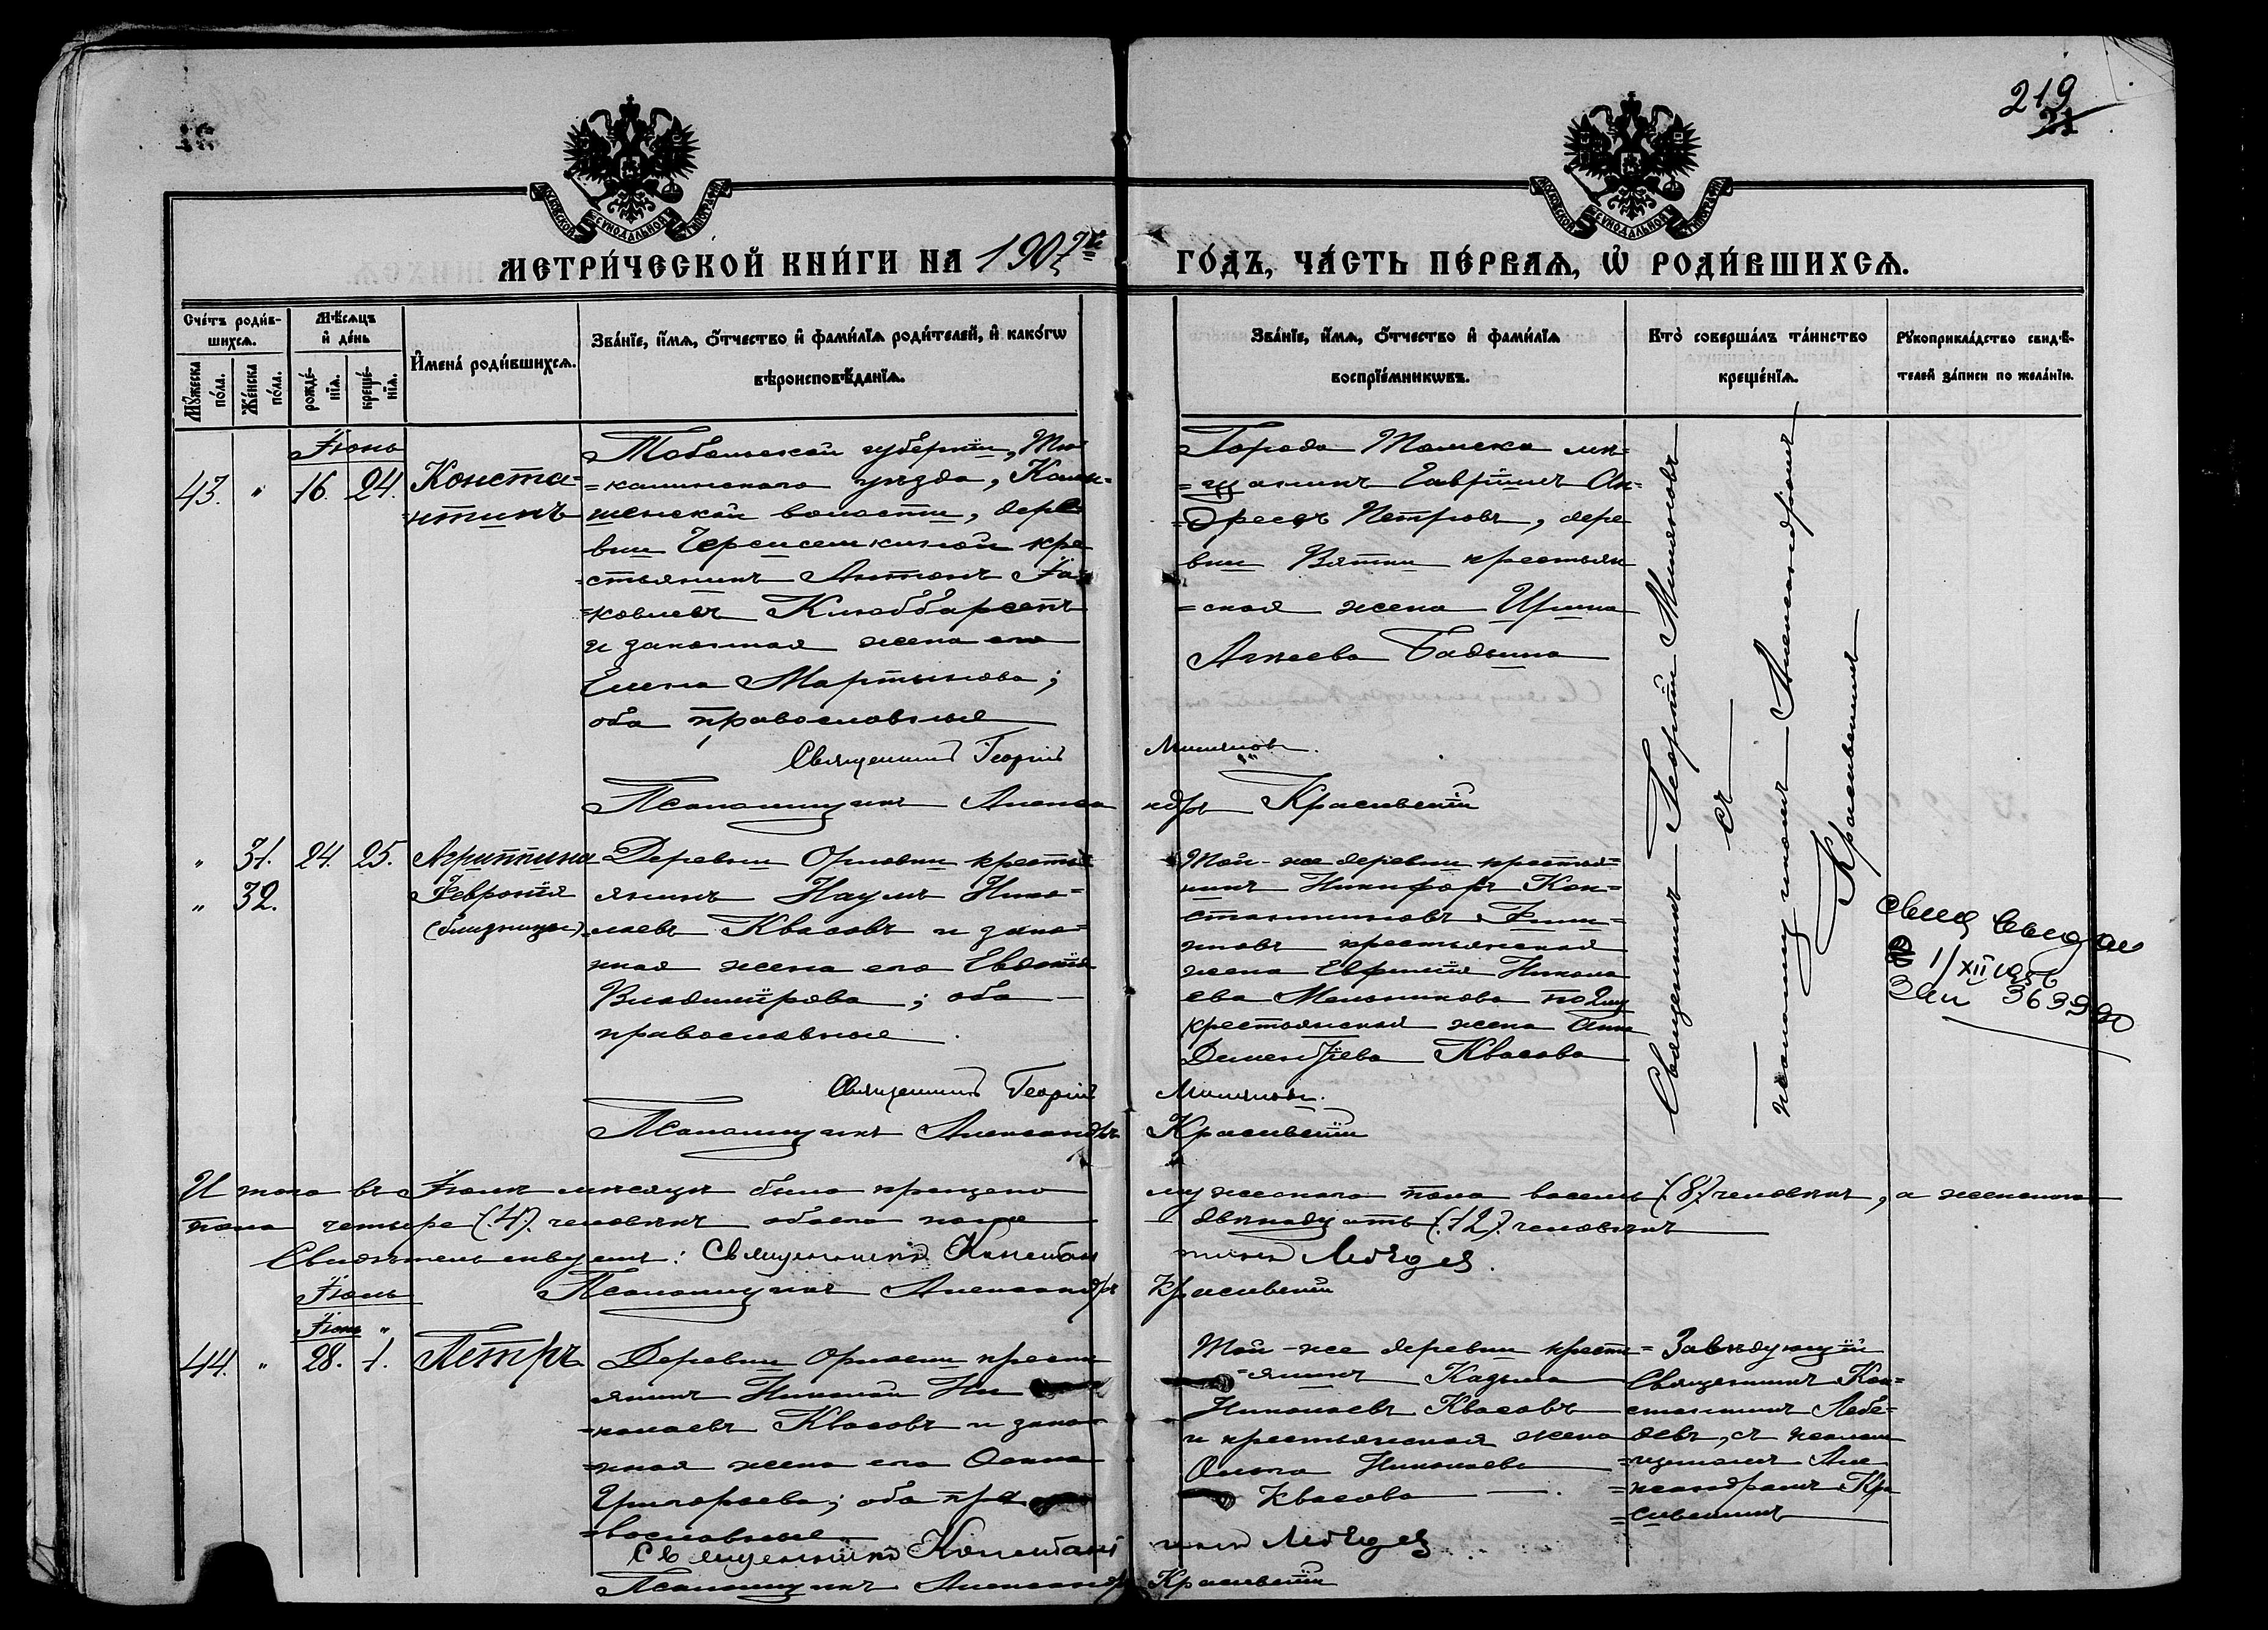 219
21
МОСКОВСКОЙ СѴНОДАЛЬНОЙ ТИПОГРАФІИ
МОСКОВСКОЙ СѴНОДАЛЬНОЙ ТИПОГРАФІИ
МЕТРИ́ЧЕСКОЙ КНИ́ГИ НА 1907й
ГО́ДЪ, ЧА́СТЬ ПЕ́РВАѦ, Ѡ҆ РОДИ́ВШИХСѦ.
Сче́тъ роди́в-
шихсѧ.
Мꙋ́жеска по́ла.
Же́нска по́ла.
Мѣ́сѧцъ
и҆ де́нь
рожде́-
нїѧ.
креще́-
нїѧ.
И҆мена̀ роди́вшихсѧ.
Зва́нїе, и҆́мѧ, ѻ҆́тчество и҆ фами́лїѧ роди́телей, и҆ како́гѡ
вѣроисповѣ́данїѧ.
Зва́нїе, и҆́мѧ, ѻ҆́тчество и҆ фами́лїѧ
воспрїе́мникѡвъ.
Кто̀ соверша́лъ та́инство
креще́нїѧ.
Рꙋкоприкла́дство свидѣ́-
телей за́писи по жела́нїю.
Іюнь
43. " 16. 24.
Конста=
=нтинъ
Тобольской губерніи, Тю=
=калинскаго уѣзда, Камы=
шенской волости, дере
вни
кре
=стьянинъ Антонъ Іа
=ковлевъ
и законная жена его
Елена Мартынова;
оба православные
Города Томска мѣ=
=щанинъ Гавріилъ Ан=
=дреевъ Петровъ, дере
вни Вятки крестьян
=ская жена Ирина
Бадьина
Священникъ Георгій
Псаломщикъ Алекса
ндръ Красивскій
Священникъ Георгій
съ
псаломщикомъ Александромъ
Красивскимъ
" 31. 24. 25.
" 32.
Агриппина
Февронія
(близнецы)
Деревни Орловки кресть=
янинъ Наумъ Нико=
=лаевъ Квасовъ и зако=
нная жена его Евдокія
Владимірова; оба
православные.
Той-же деревни крестья=
нинъ Никифоръ Кон=
стантиновъ
крестьянская
жена Евфимія Никола
ева Мельникова по 2му
крестьянская жена Анна
Дементіева Квасова
свид выдан
1/XII 1956
36390
Священникъ Георгій
Псаломщикъ Александръ
Красивскій
Итого въ Іюнѣ мѣсяцѣ было крещено
мужескаго пола восемь (8) человѣкъ, а женскаго
пола четыре (4) человѣкъ обоего пола
двѣнадцать (12) человѣкъ
Свидѣтельствуемъ: Священникъ Констан
тинъ Лебедев.
Псаломщикъ Александръ
Красивскій
Іюль
Іюнь "
44. " 28. 1.
Петръ
Деревни Орловки крестья
янинъ Николай Ни
=колаевъ Квасовъ и зако
=нная жена его
Григорьева; оба пра
=вославные
Той-же деревни кресть=
=янинъ Кадьма
Николаевъ Квасовъ
и крестьянская жена
Ольга Николаева
Квасова.
Завѣдующій
Священникъ Кон=
стантинъ Лебе=
девъ, съ псалом
=щикомъ Але
=ксандромъ Кра
=сивскимъ
Священникъ Констан
тинъ Лебедев
Псаломщикъ Александръ
Красивскій